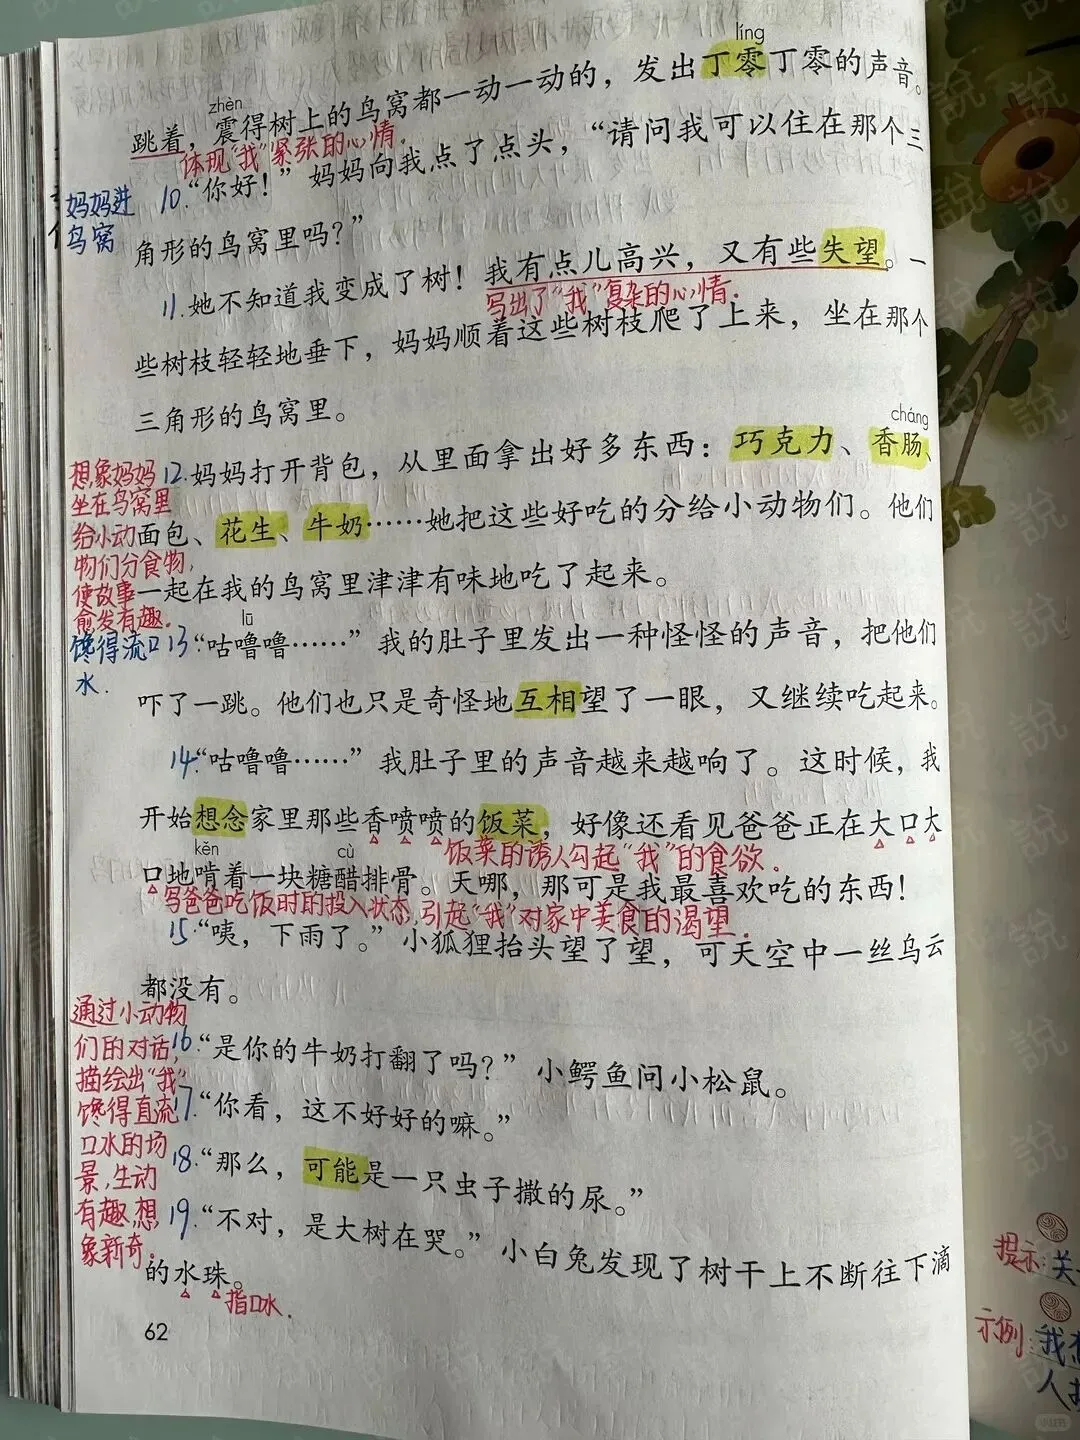 líng
跳着，震得树上的鸟窝都一动一动的，发出丁零丁零的声音。
zhèn
体现“我”紧张的心情.
妈妈进
鸟窝
10.“你好！”妈妈向我点了点头，“请问我可以住在那个三
角形的鸟窝里吗？”
11.她不知道我变成了树！我有点儿高兴，又有些失望。一
写出了“我”复杂的心情.
些树枝轻轻地垂下，妈妈顺着这些树枝爬了上来，坐在那个
三角形的鸟窝里。
cháng
12.妈妈打开背包，从里面拿出好多东西：巧克力、香肠、
面包、花生、牛奶……她把这些好吃的分给小动物们。他们
一起在我的鸟窝里津津有味地吃了起来。
想象妈妈
坐在鸟窝里
给小动
物们分食物,
使故事
愈发有趣.
lū
13.“咕噜噜……”我的肚子里发出一种怪怪的声音，把他们
馋得流口
水.
吓了一跳。他们也只是奇怪地互相望了一眼，又继续吃起来。
14.“咕噜噜……”我肚子里的声音越来越响了。这时候，我
开始想念家里那些香喷喷的饭菜，好像还看见爸爸正在大口大
饭菜的诱人勾起“我”的食欲.
kěn
cù
口地啃着一块糖醋排骨。天哪，那可是我最喜欢吃的东西！
写爸爸吃饭时的投入状态,引起“我”对家中美食的渴望.
15.“咦，下雨了。”小狐狸抬头望了望，可天空中一丝乌云
都没有。
通过小动物
们的对话,
描绘出“我”
馋得直流
口水的场
景,生动
有趣,想
象新奇.
16.“是你的牛奶打翻了吗？”小鳄鱼问小松鼠。
17.“你看，这不好好的嘛。”
18.“那么，可能是一只虫子撒的尿。”
19.“不对，是大树在哭。”小白兔发现了树干上不断往下滴
的水珠。
指口水.
62
提示:关
示例:我
人
小红书